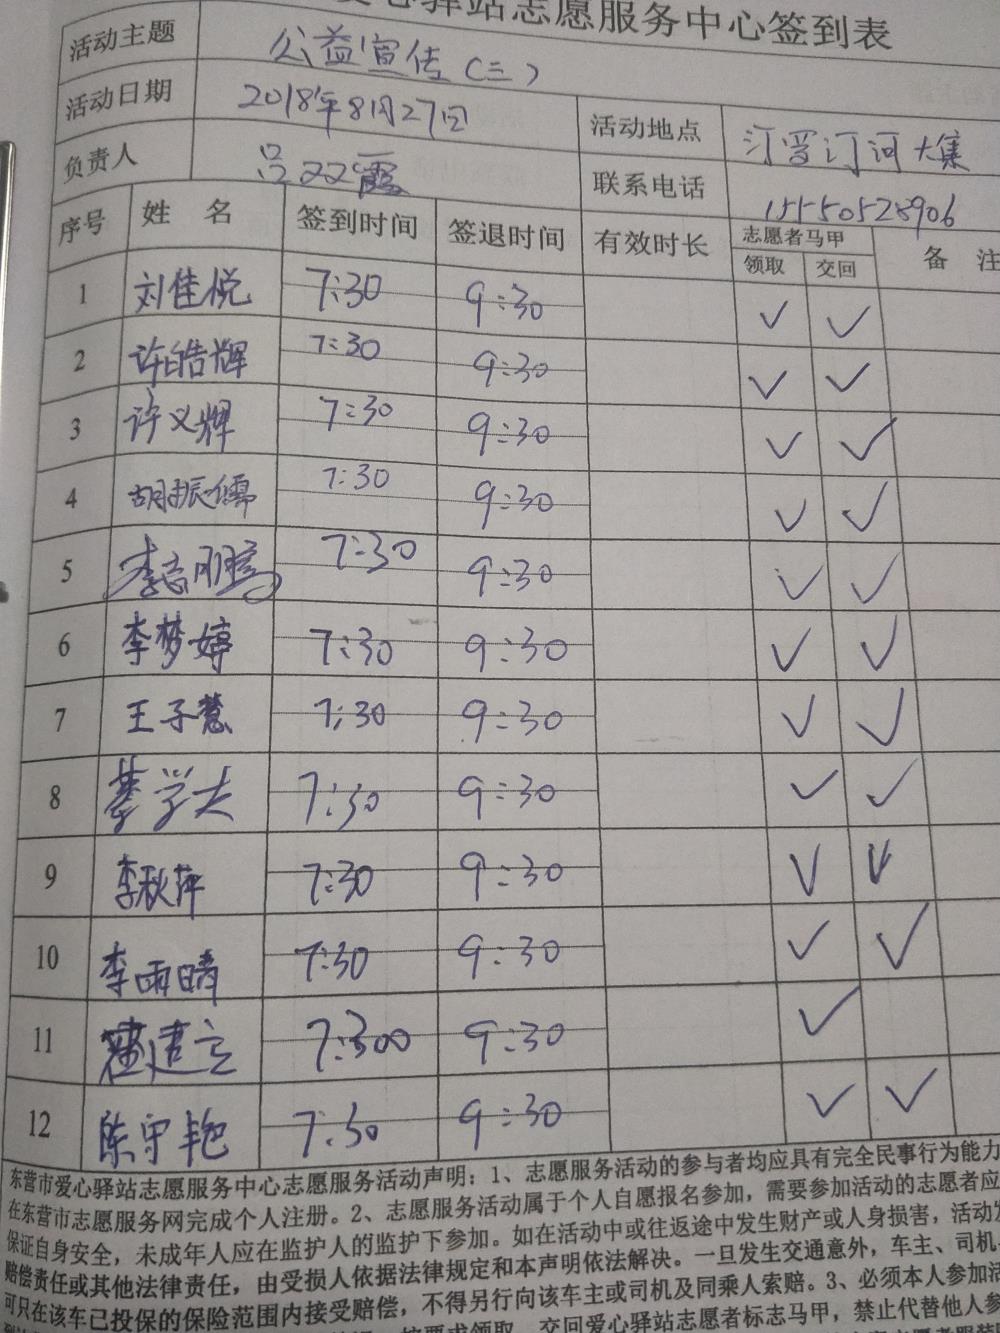 爱心驿站志愿服务中心签到表
活动主题 公益宣传(三)
活动日期 2018年8月27日 活动地点 汀罗汀河大集
负责人 吕双霞 联系电话 15550528906
序号 姓 名 签到时间 签退时间 有效时长 志愿者马甲 领取 交回 备 注
1 刘佳悦 7:30 9:30 ✓ ✓
2 许皓辉 7:30 9:30 ✓ ✓
3 许义辉 7:30 9:30 ✓ ✓
4 胡振儒 7:30 9:30 ✓ ✓
5 李志鹏 7:30 9:30 ✓ ✓
6 李梦婷 7:30 9:30 ✓ ✓
7 王子慧 7:30 9:30 ✓ ✓
8 綦学夫 7:30 9:30 ✓ ✓
9 李秋萍 7:30 9:30 ✓ ✓
10 李雨晴 7:30 9:30 ✓ ✓
11 建立 7:300 9:30 ✓
12 陈守艳 7:30 9:30 ✓ ✓
东营市爱心驿站志愿服务中心志愿服务活动声明:1、志愿服务活动的参与者均应具有完全民事行为能力
在东营市志愿服务网完成个人注册。2、志愿服务活动属于个人自愿报名参加,需要参加活动的志愿者应
保证自身安全,未成年人应在监护人的监护下参加。如在活动中或往返途中发生财产或人身损害,活动发
赔偿责任或其他法律责任,由受损人依据法律规定和本声明依法解决。一旦发生交通意外,车主、司机
可只在该车已投保的保险范围内接受赔偿,不得另行向该车主或司机及同乘人索赔。3、必须本人参加活
按要求领取、交回爱心驿站志愿者标志马甲,禁止代替他人参